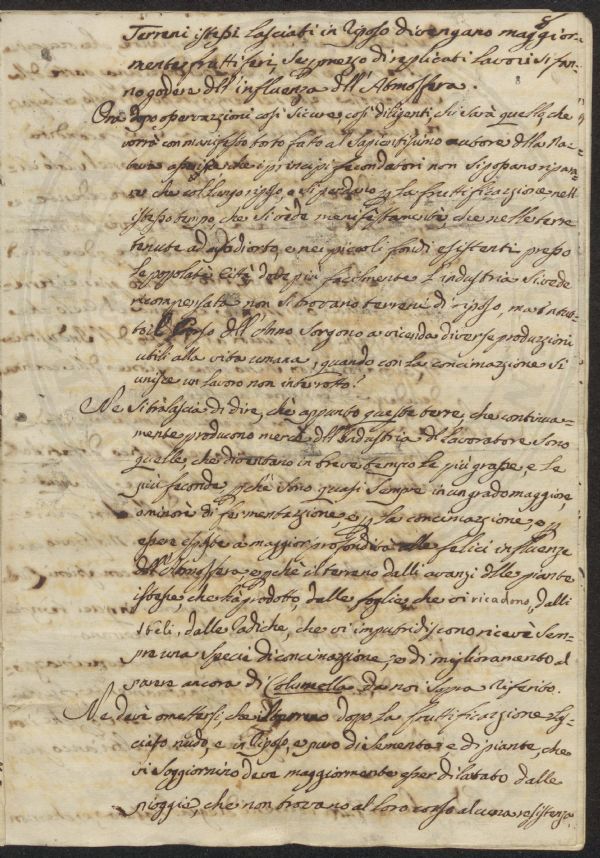 8
Terreni istessi lasciati in riposo divengano maggior-
mente fruttiferi, se p mezzo di replicati lavori si fan-
no godere dll' influenza dll' Atmosfera.
Ora dopo osservazioni così sicure, così diligenti, chi sarà quello, che
vorrà con manifesto torto fatto al sapientissimo autore dlla Na-
tura che i principj fecondatori non si possano ripara-
re che col lungo riposo, e si perdano p la fruttificazione nell'
istesso tempo che si vede manifestamente, che nelle terre
tenute ad uso d'orto, e nei piccoli fondi esistenti presso
le popolate Città dove più facilmente l'industria si vede
ricompensata non si trovano terreni di riposo, ma in tut-
to il Corso dll' Anno sorgono a vicenda diverse produzioni
utili alla vita umana, quando con la concimazione si
unisce un lavoro non interrotto!
Ne si tralascia di dire, che appunto queste terre, che continua-
mente producono mercè dll' Industria dl lavoratore sono
quelle, che diventano in breve tempo le più grasse, e le
più feconde, pchè sono quasi sempre in un grado maggiore,
o minore di fermentazione, e p la concimazione, e p
essere esposte a maggior profondità alle felici influenze
dll' Atmosfera e pchè il terreno dalli avanzi dlle piante
istesse, che hà prodotto, dalle foglie, che vi ricadono, dalli
steli, dalle radiche, che vi imputridiscono riceve sem-
pre una specie di concimazione, e di miglioramento al
parere ancora di Columella da noi sopra riferito.
Ne deve omettersi, che il terreno dopo la fruttificazione la-
sciato nudo, e in riposo, e privo di sementa, e di piante, che
vi soggiornino deve maggiormente esser dilavato dalle
pioggie, che non trovano al loro corso alcuna resistenza,